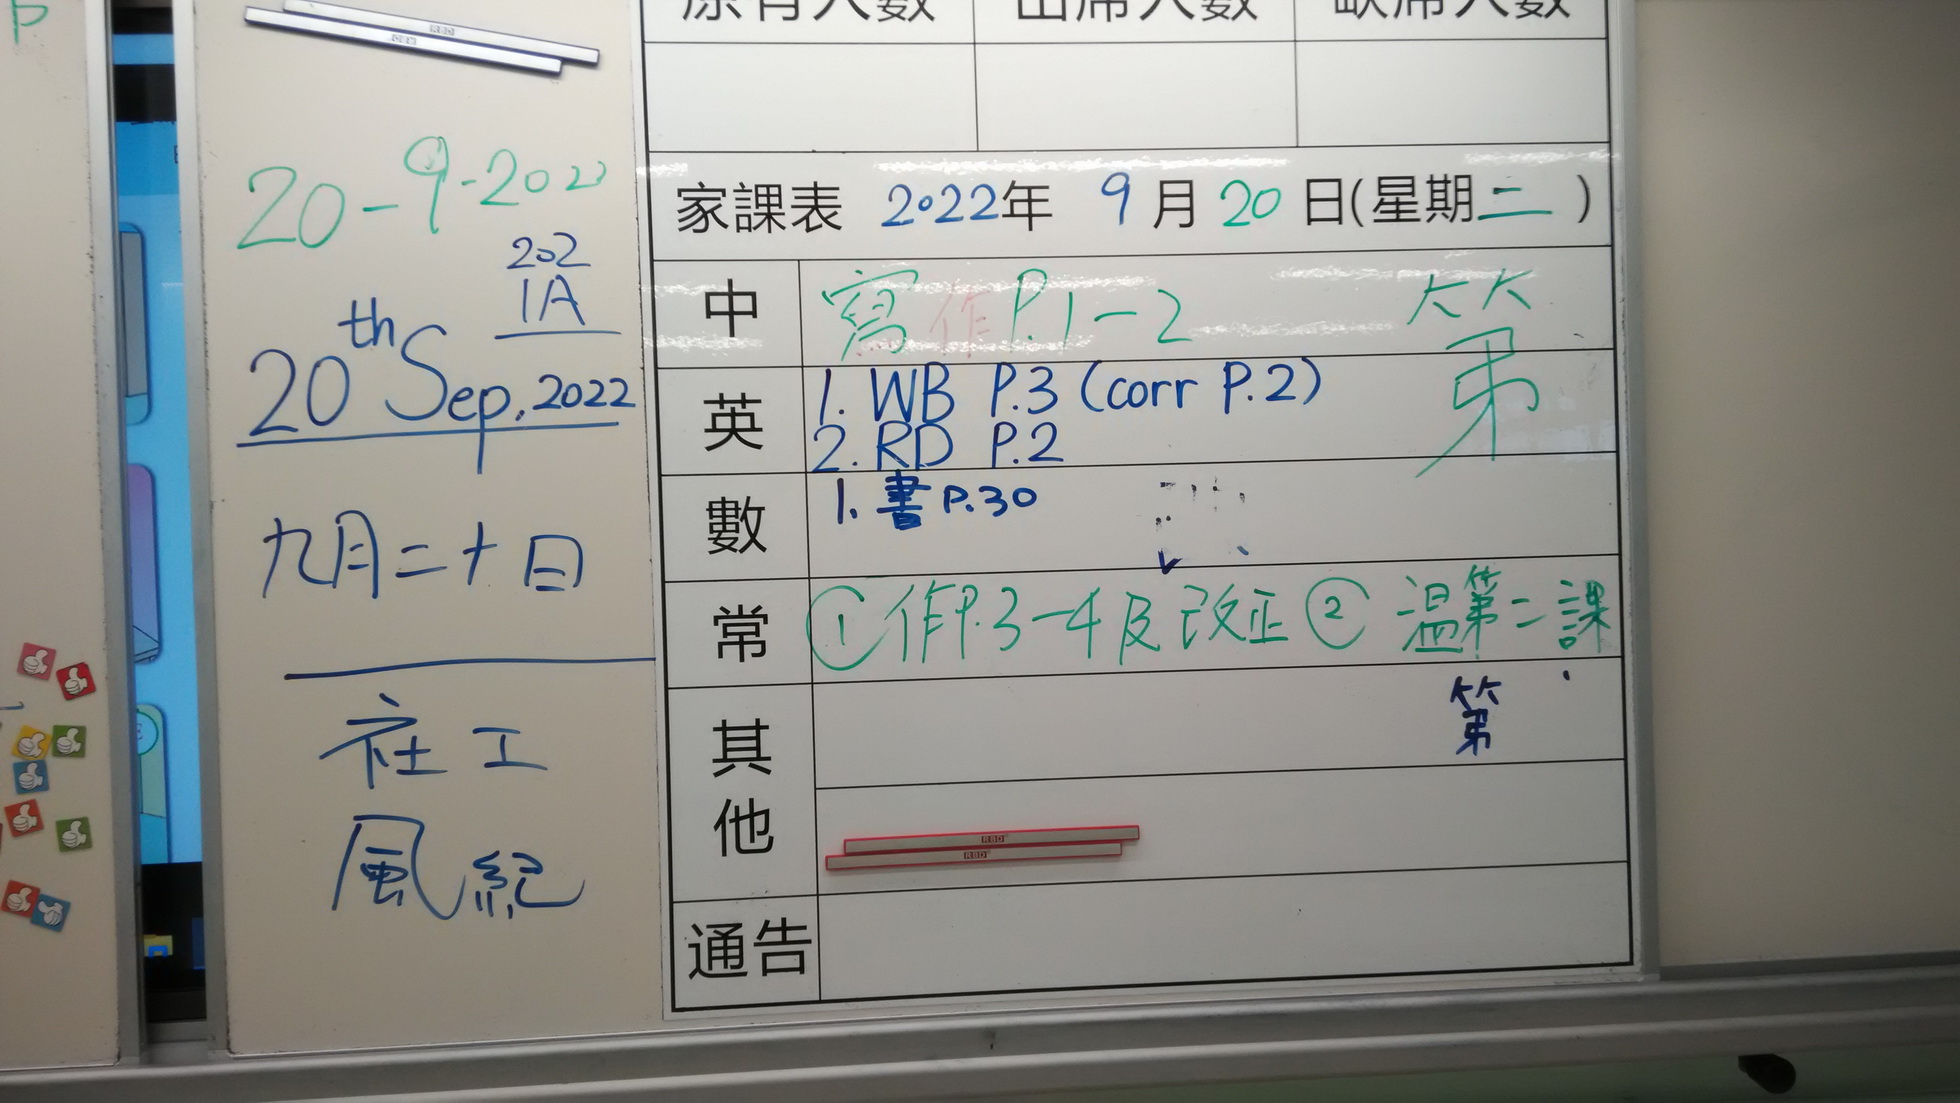 原有人數 出席人數 缺席人數
家課表 2022年 9月20日(星期二)
中 寫作P.1-2 第
英 1. WB P.3 (corr P.2)
2. RD P.2
數 1. 書P.30
常 ① 作P.3-4及改正 ② 溫第二課
第
其他
RBD
RBD
通告
20-9-2022
202
1A
20th Sep, 2022
九月二十日
社工
風紀